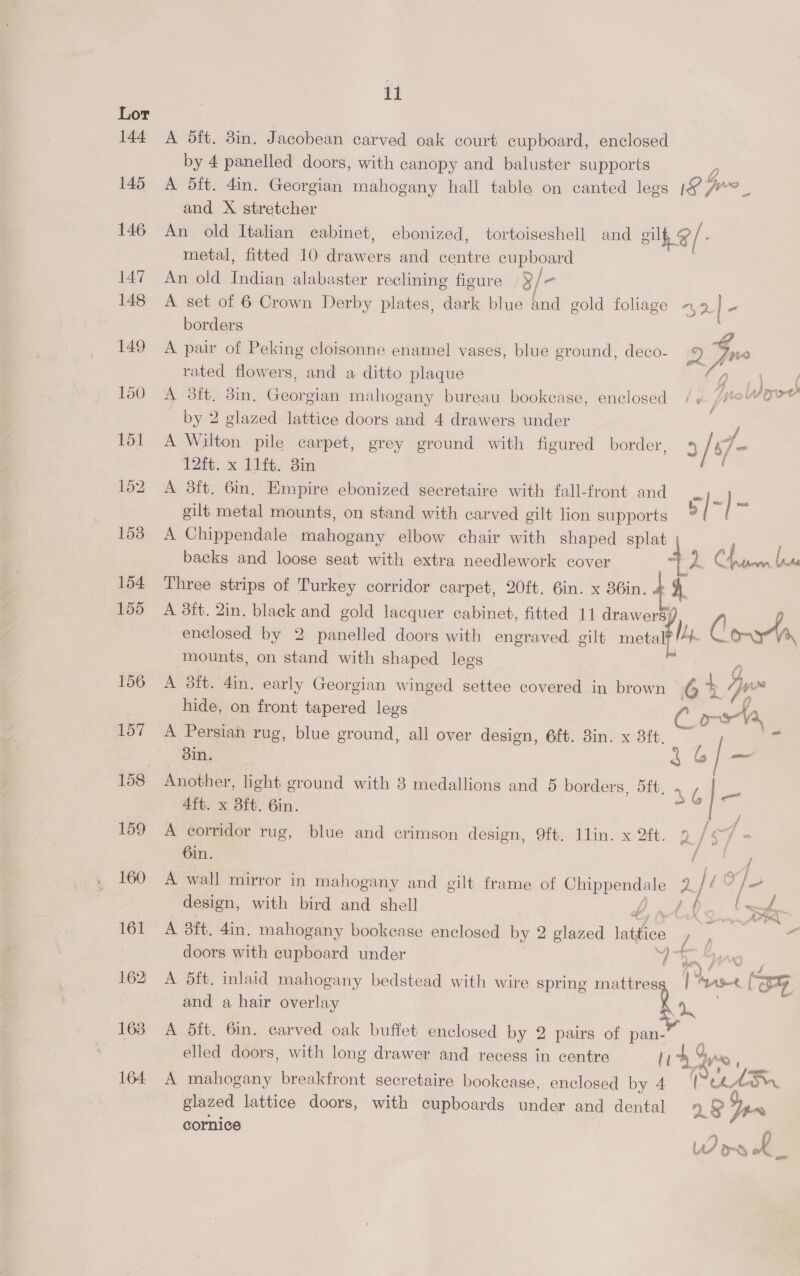 11
Lot
144 A 5ft. 3in. Jacobean carved oak court cupboard, enclosed
by 4 panelled doors, with canopy and baluster supports
145 A 5ft. 4in. Georgian mahogany hall table on canted legs 18 gns
and X stretcher
146 An old Italian cabinet, ebonized, tortoiseshell and gilt
metal, fitted 10 drawers and centre cupboard
147 An old Indian alabaster reclining figure 3/-
148 A set of 6 Crown Derby plates, dark blue and gold foliage 42/-
borders
149 A pair of Peking cloisonne enamel vases, blue ground, deco- 9 gns
rated flowers, and a ditto plaque
150 A 3ft. 3in. Georgian mahogany bureau bookcase, enclosed
by 2 glazed lattice doors and 4 drawers under
151 A Wilton pile carpet, grey ground with figured border,
12ft. x 11ft. 3in
152 A 3ft. 6in. Empire ebonized secretaire with fall-front and
gilt metal mounts, on stand with carved gilt lion supports 5/-/-
153 A Chippendale mahogany elbow chair with shaped splat
backs and loose seat with extra needlework cover
154 Three strips of Turkey corridor carpet, 20ft. 6in. x 36in.
155 A 3ft. 2in. black and gold lacquer cabinet, fitted 11 drawers,
enclosed by 2 panelled doors with engraved gilt metal
mounts, on stand with shaped legs
156 A 3ft. 4in. early Georgian winged settee covered in brown 64 gns
hide, on front tapered legs
157 A Persian rug, blue ground, all over design, 6ft. 3in. x 3ft.
3in. 36/-
158 Another, light ground with 3 medallions and 5 borders, 5ft. 36/-
4ft. x 3ft. 6in.
159 A corridor rug, blue and crimson design, 9ft. 11in. x 2ft.
6in.
160 A wall mirror in mahogany and gilt frame of Chippendale
design, with bird and shell
161 A 3ft. 4in. mahogany bookcase enclosed by 2 glazed lattice
doors with cupboard under
162 A 5ft. inlaid mahogany bedstead with wire spring mattress
and a hair overlay
163 A 5ft. 6in. carved oak buffet enclosed by 2 pairs of pan-
elled doors, with long drawer and recess in centre
164 A mahogany breakfront secretaire bookcase, enclosed by 4
glazed lattice doors, with cupboards under and dental 28 gns
cornice